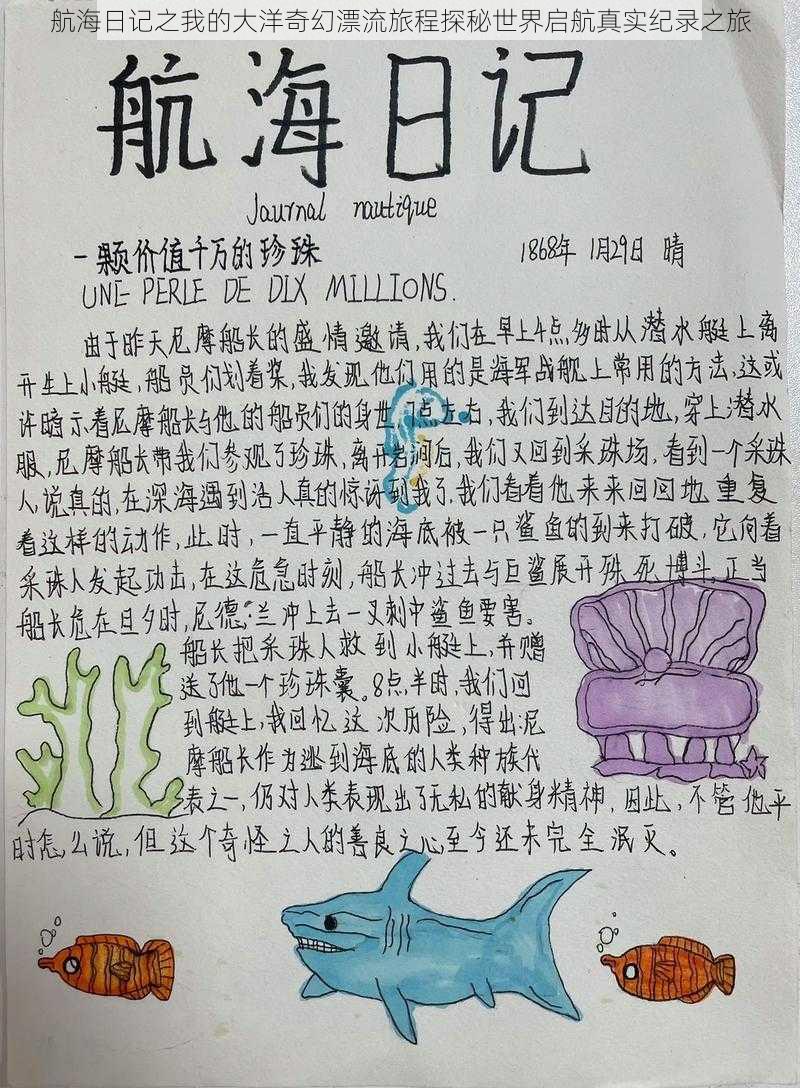 航海日记之我的大洋奇幻漂流旅程探秘世界启航真实纪录之旅
航海日记
Journal nautique
一颗价值千万的珍珠 1868年 1月29日 晴
UNE PERLE DE DIX MILLIONS.
由于昨天尼摩船长的盛情邀请,我们在早上4点多时从潜水艇上离
开坐上小艇,船员们划着桨,我发现他们用的是海军战舰上常用的方法,这或
许暗示着尼摩船长与他的船员们的身世,门点左右,我们到达目的地,穿上潜水
服,尼摩船长带我们参观了珍珠,离开岩洞后,我们又回到采珠场,看到一个采珠
人,说真的,在深海遇到活人真的惊讶到我了,我们看着他来来回回地重复
着这样的动作,此时,一直平静的海底被一只鲨鱼的到来打破,它向着
采珠人发起攻击,在这危急时刻,船长冲过去与巨鲨展开殊死博斗,正当
船长危在旦夕时,尼德·兰冲上去一叉刺中鲨鱼要害。
船长把采珠人救到小艇上,并赠
送了他一个珍珠囊。8点半时,我们回
到艇上,我回忆这次历险,得出:尼
摩船长作为逃到海底的人类种族代
表之一,仍对人类表现出了无私的献身精神,因此,不管他平
时怎么说,但这个奇怪之人的善良之心至今还未完全泯灭。